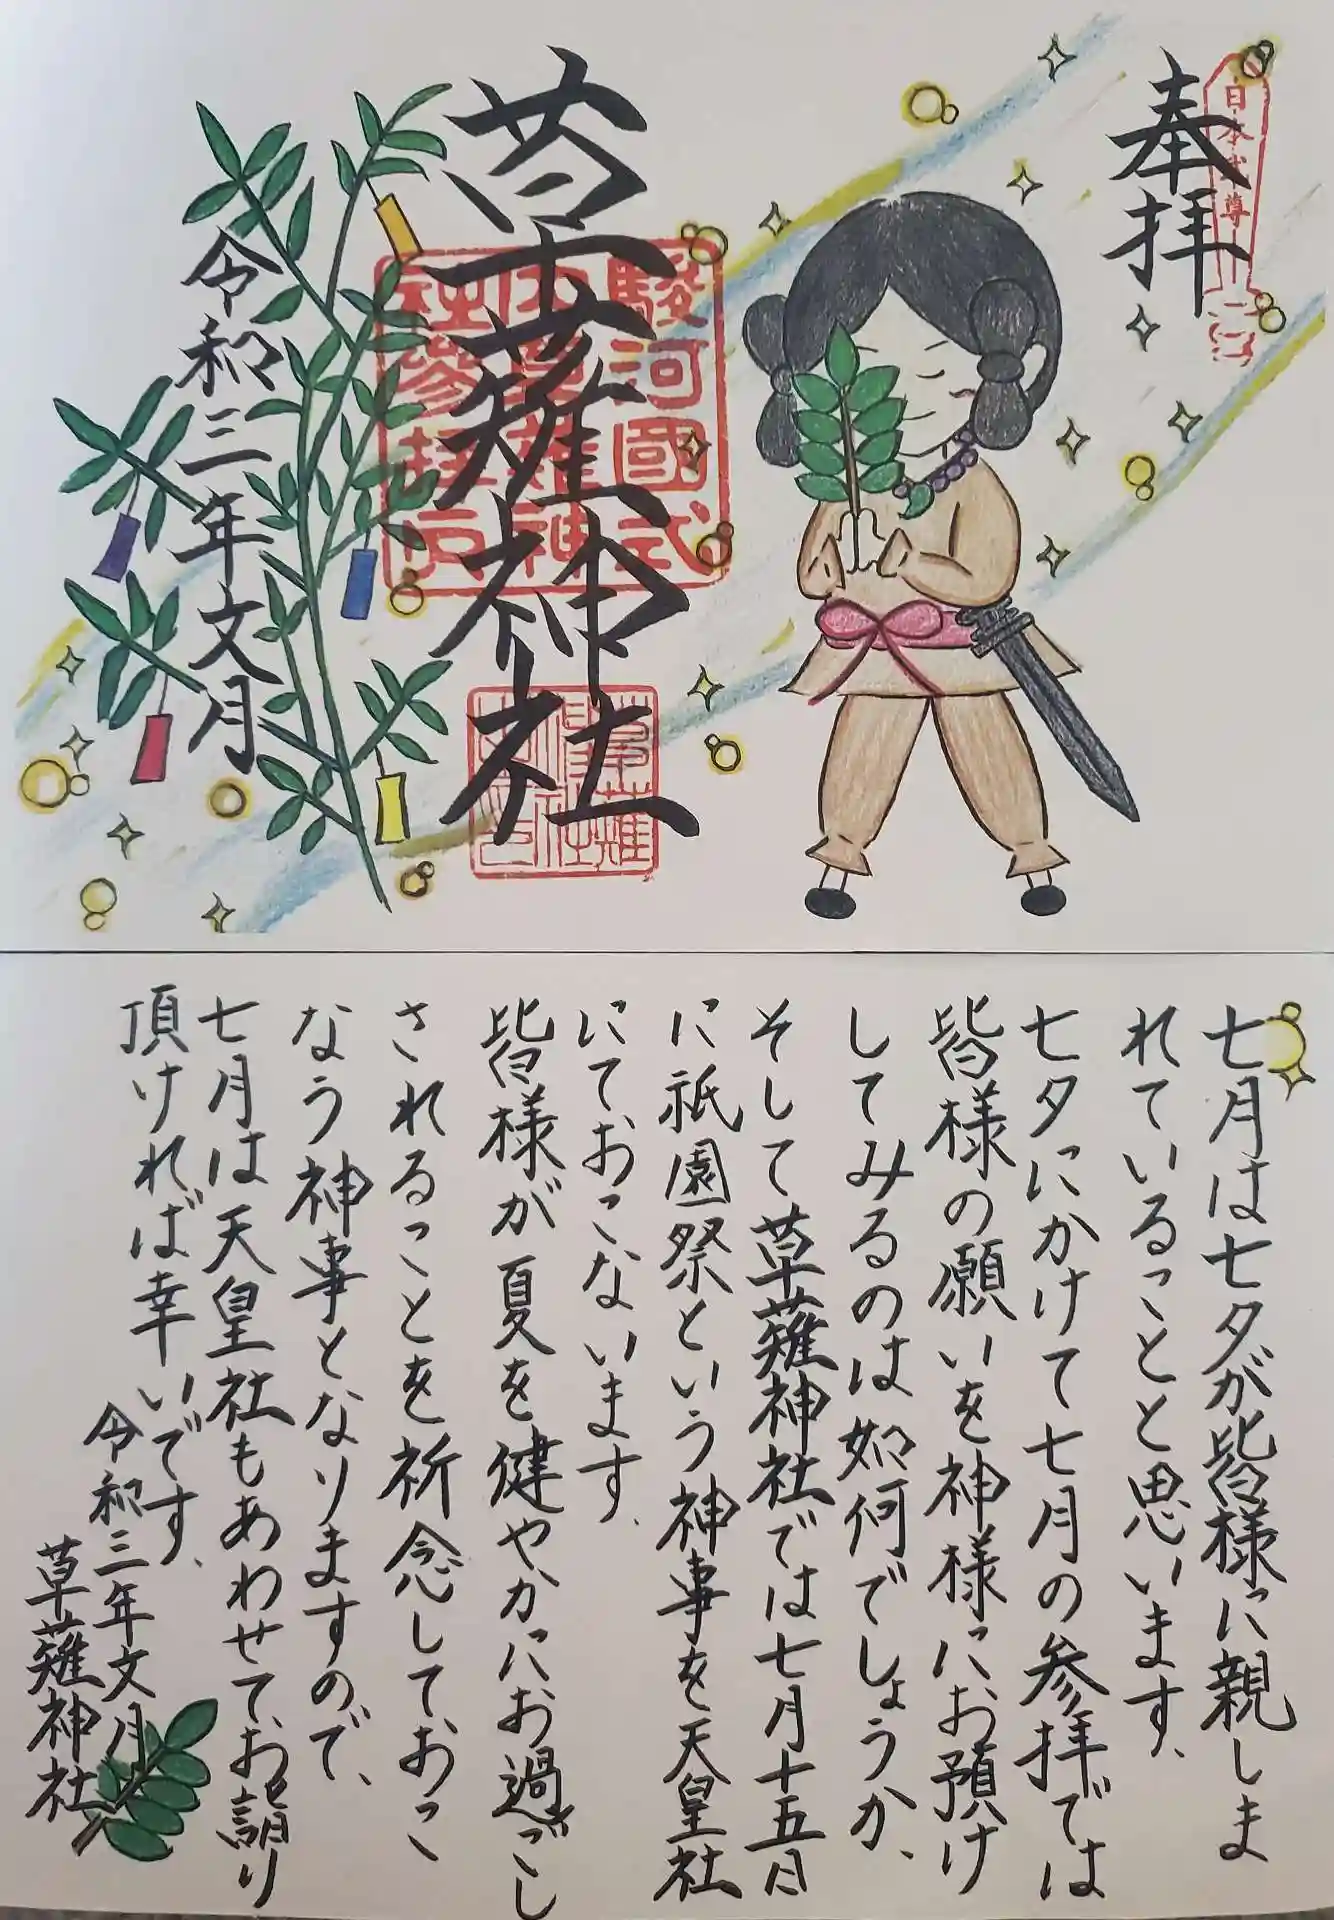 奉拝
日本武尊
駿河國式
内草薙神
社参拝之
草薙神社
草薙
神社
令和三年文月
七月は七夕が皆様に親しま
れていることと思います、
七夕にかけて七月の参拝では
皆様の願いを神様にお預け
してみるのは如何でしょうか、
そして草薙神社では七月十五日
に祇園祭という神事を天皇社
にておこないます、
皆様が夏を健やかにお過ごし
されることを祈念しておこ
なう神事となりますので、
七月は天皇社もあわせてお詣り
頂ければ幸いです、
令和三年文月
草薙神社